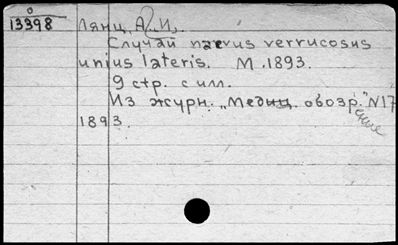 0
13398 Лянц, А. И.
Случай naevus verrucosus
unius lateris. М. 1893.
9 стр. с илл.
Из журн. „Медиц. обозр." N17
1893.